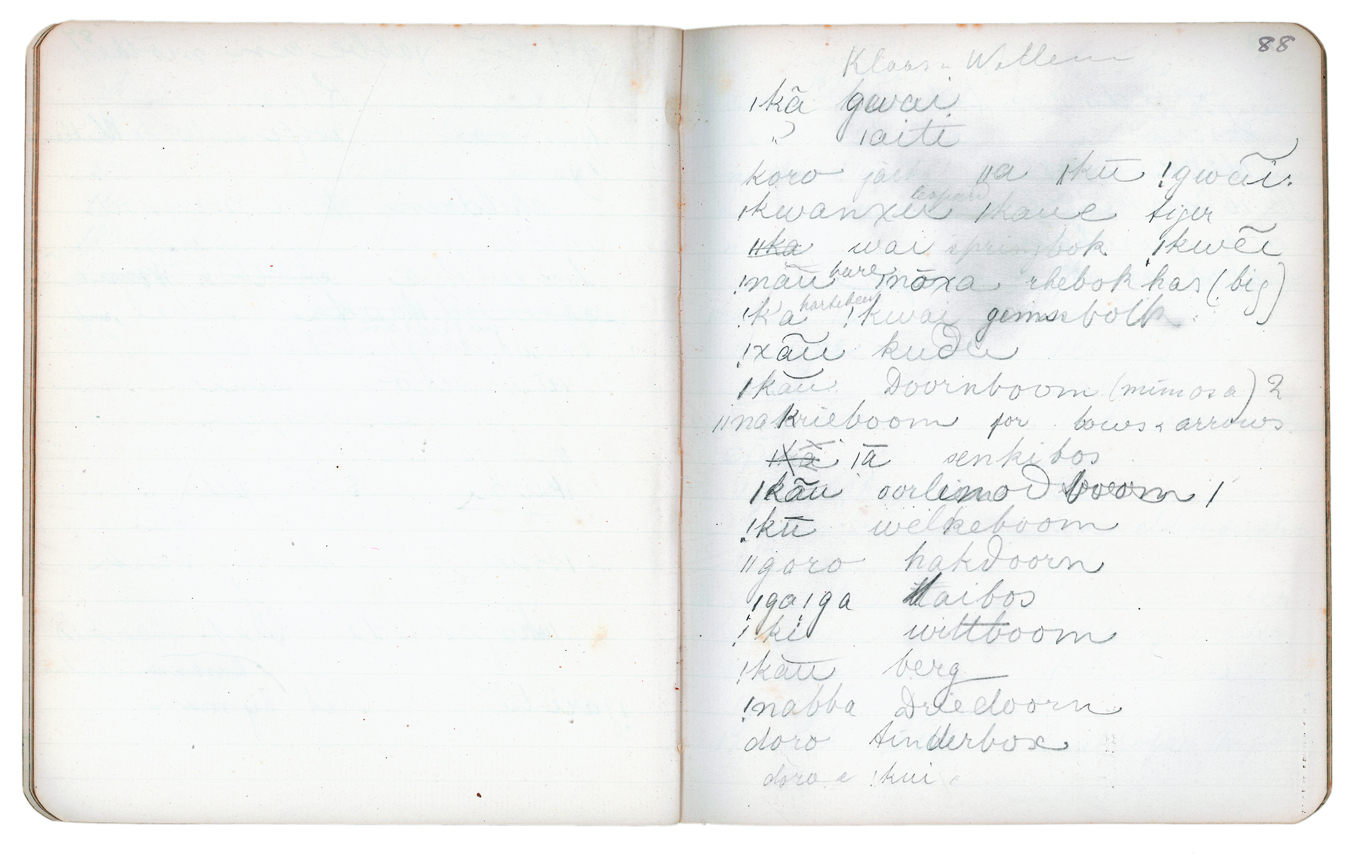 88
Klaas & Willem
ǀkā gwai
" ǀaiti
koro ǁa ǁkū ǃgwãi.
leopard
ǀkwanxu ǀkaue tiger
ǁka wai springbok ǃkwẽi
ǃnãu hare ǃnōxa rhebokkas (big)
ǃka hartebeest ǃkwai gemsbolk
ǃxãu kudu
ǀkãu Doornboom (mimosa) 2
ǁnakrieboom for bows & arrows
ǀkã ǀā senkibos
ǀkãu oorlimod boom 1
ǃkū welkeboom
ǁgoro hakdoorn
ǀgaǀga taibos
ǃki wittboom
ǀkau berg
ǃnabba Driedoorn
doro tinderbox
doro a ǃkui